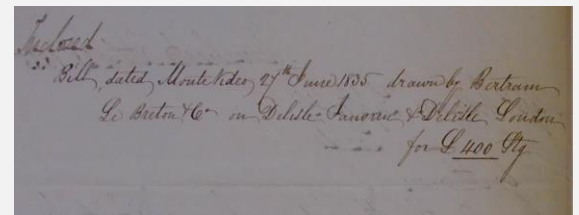 Inclosed
Bill, dated, Monte Video, 27th June 1835 drawn by Bertram
Le Breton & Co on Delisle Janvrin & Delisle London
for £ 400 Stg